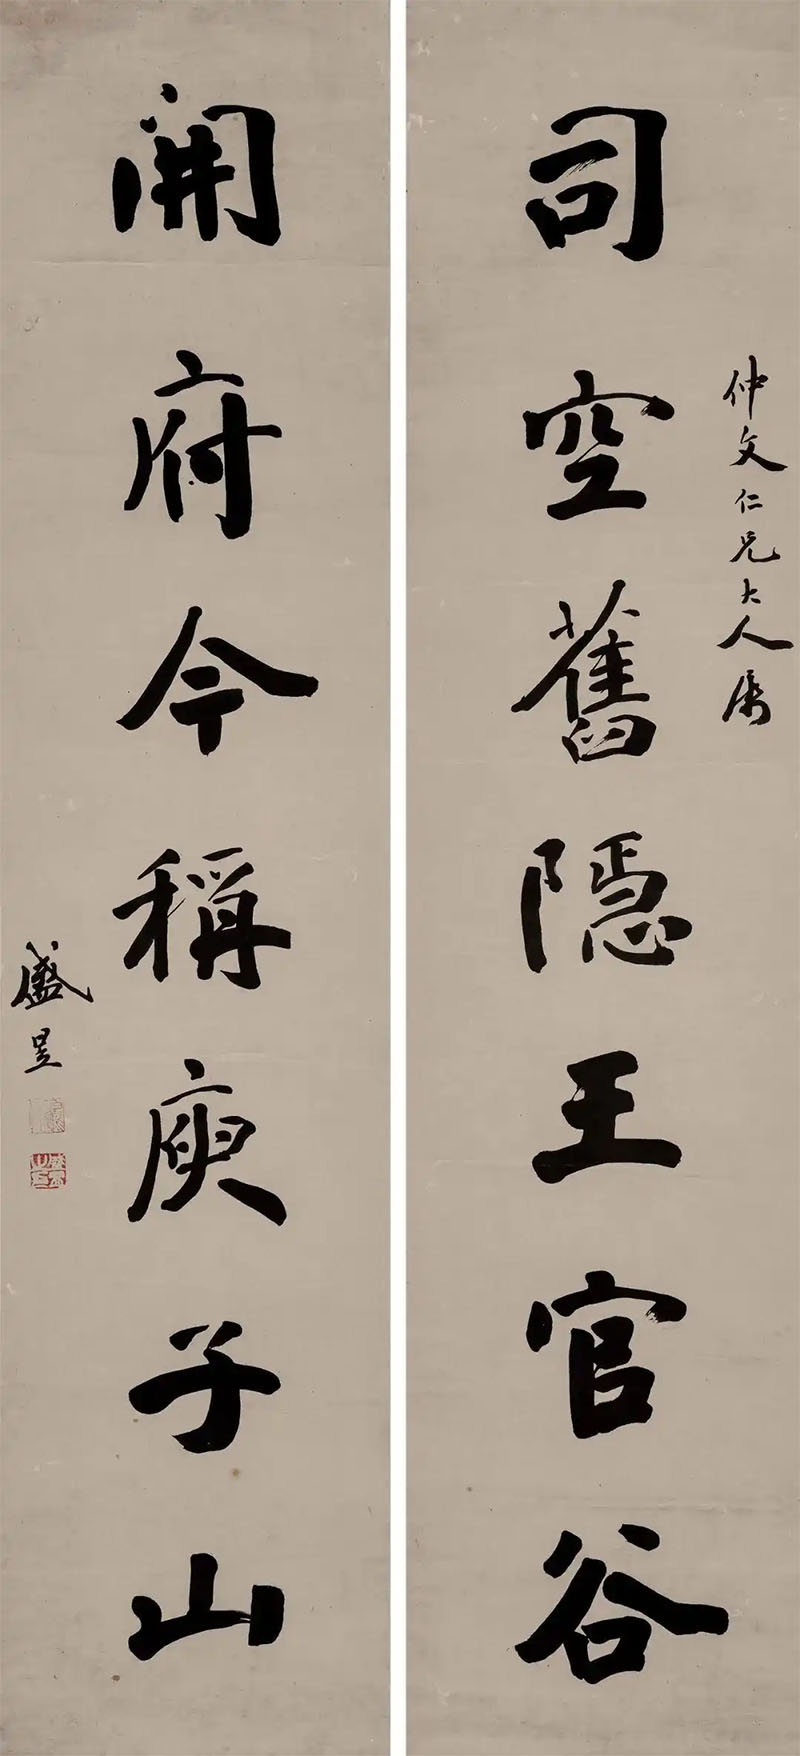 仲文仁兄大人属
司空舊隱王官谷
開府今稱庾子山
盛昱